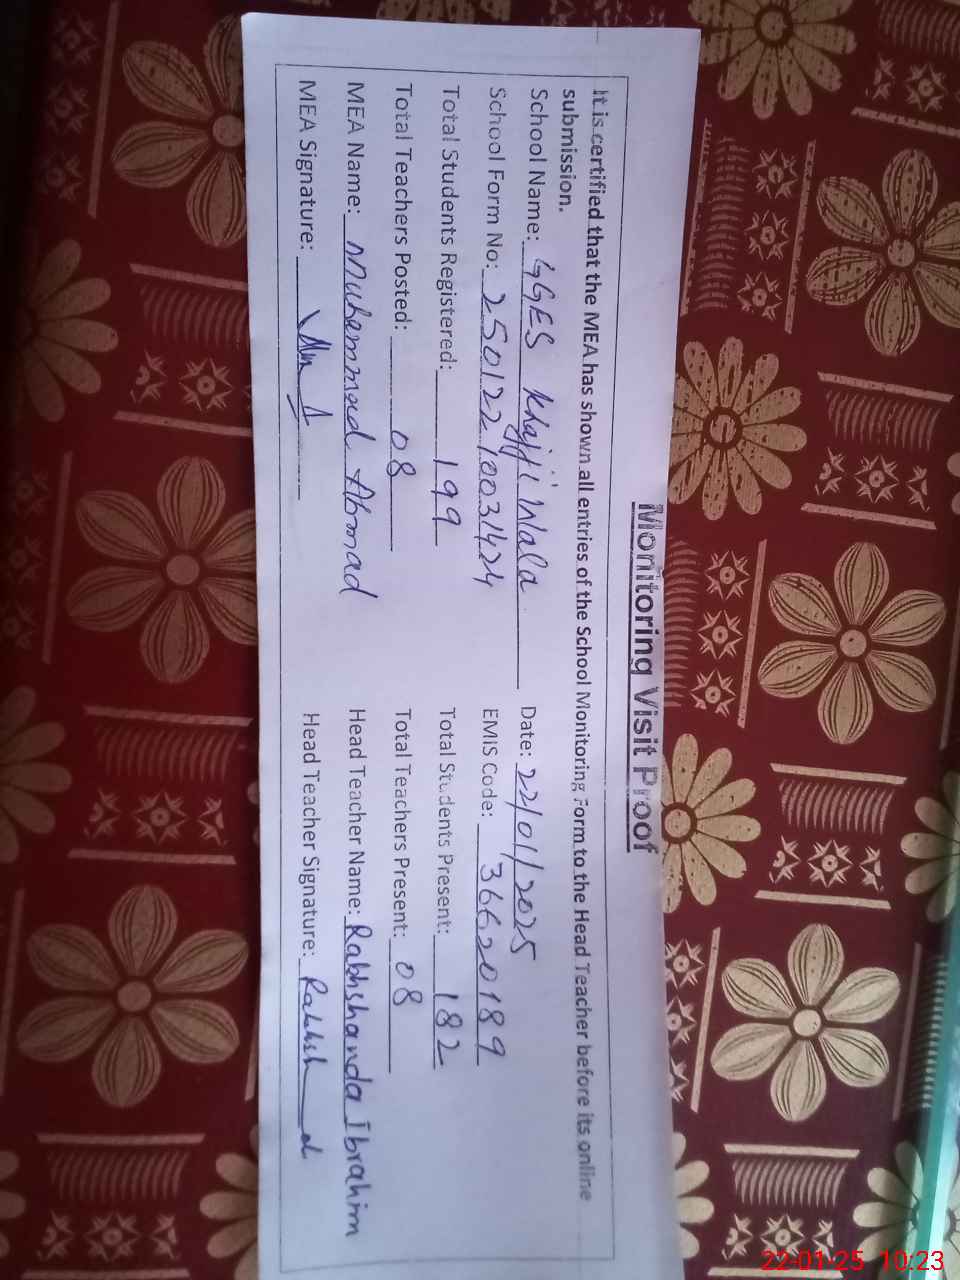 Monitoring Visit Proof
It is certified that the MEA has shown all entries of the School Monitoring Form to the Head Teacher before its online
submission.
School Name: GGES Khajji Wala Date: 22/01/2025
School Form No: 25012210031424 EMIS Code: 36620189
Total Students Registered: 199 Total Students Present: 182
Total Teachers Posted: 08 Total Teachers Present: 08
MEA Name: Muhammad Ahmad Head Teacher Name: Rabhshanda Ibrahim
MEA Signature: Head Teacher Signature:
22-01-25 10:23